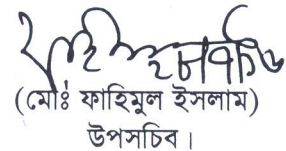 (মোঃ ফাহিমুল ইসলাম)
উপসচিব।